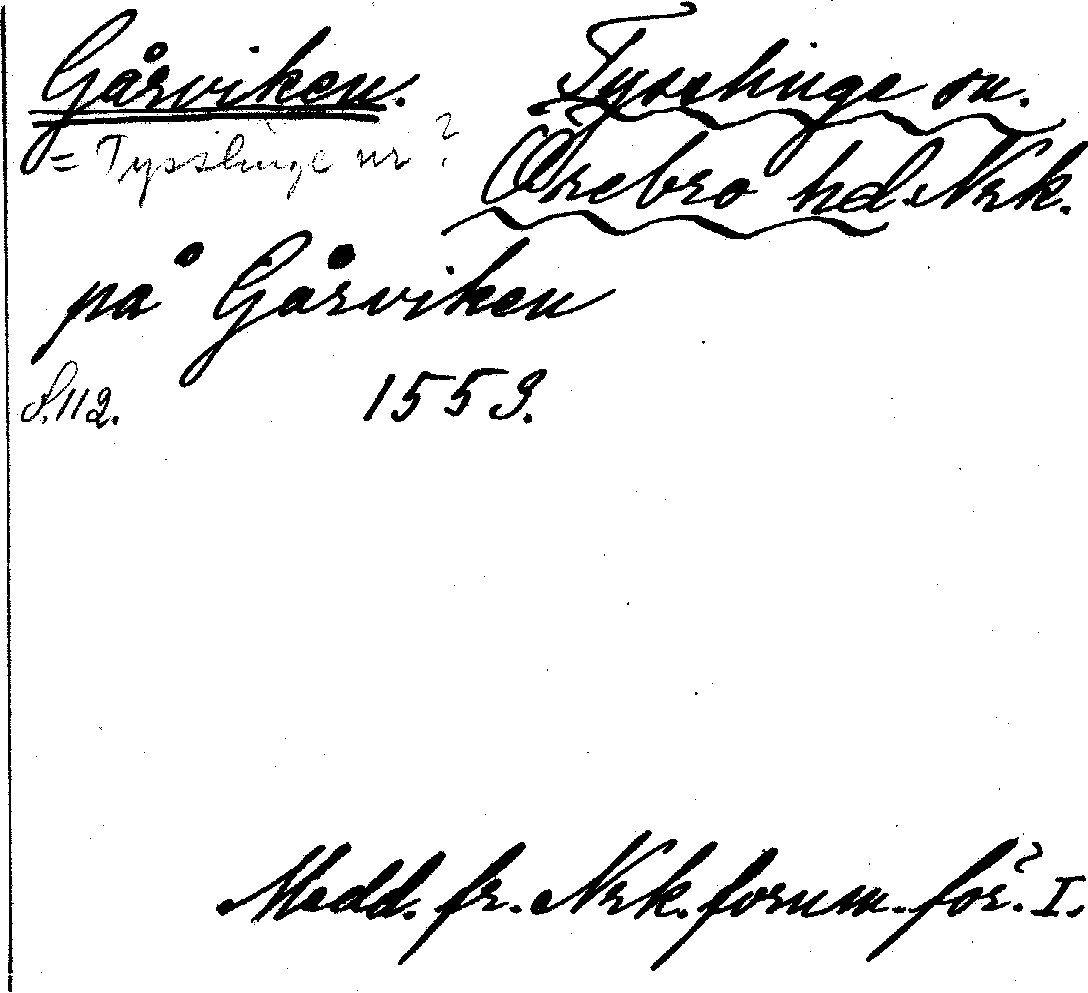 Gårviken. Tysslinge sn.
= Tysslinge nr ? Örebro hd. Nrk.
på Gårviken
S. 112. 1553.
Medd. fr. Nrk. fornm. för. I.